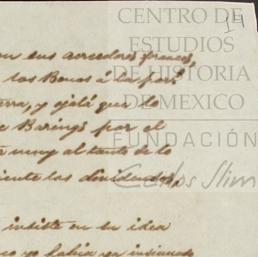 CENTRO DE
ESTUDIOS
DE HISTORIA
DE MEXICO
FUNDACIÓN
Carlos Slim
14
con sus acreedores
los Bonos á la par
y ojalá que lo
Barings por el
muy al tanto de lo
los dividendos,
insiste en su idea
yo había ya insinuado